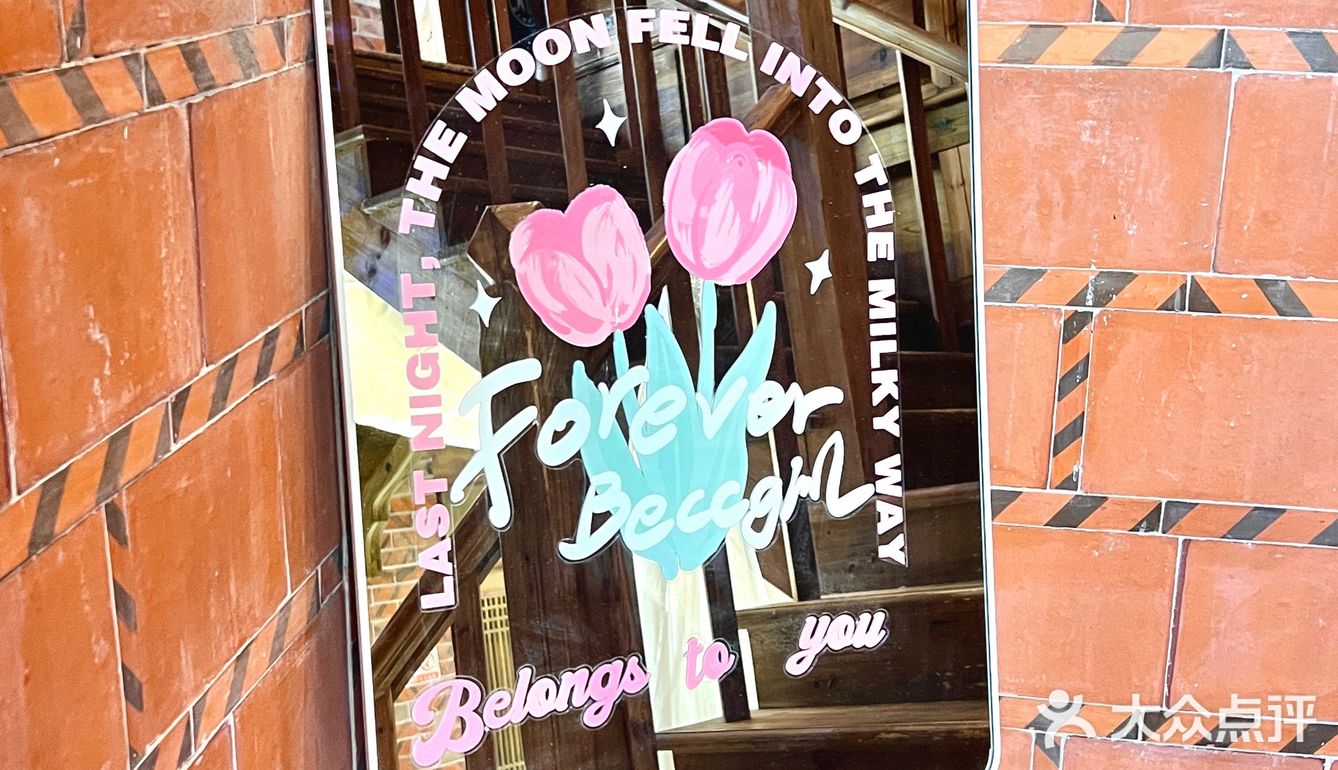 LAST NIGHT, THE MOON FELL INTO THE MILKY WAY
Forever
Beccgirl
Belongs to you
大众点评